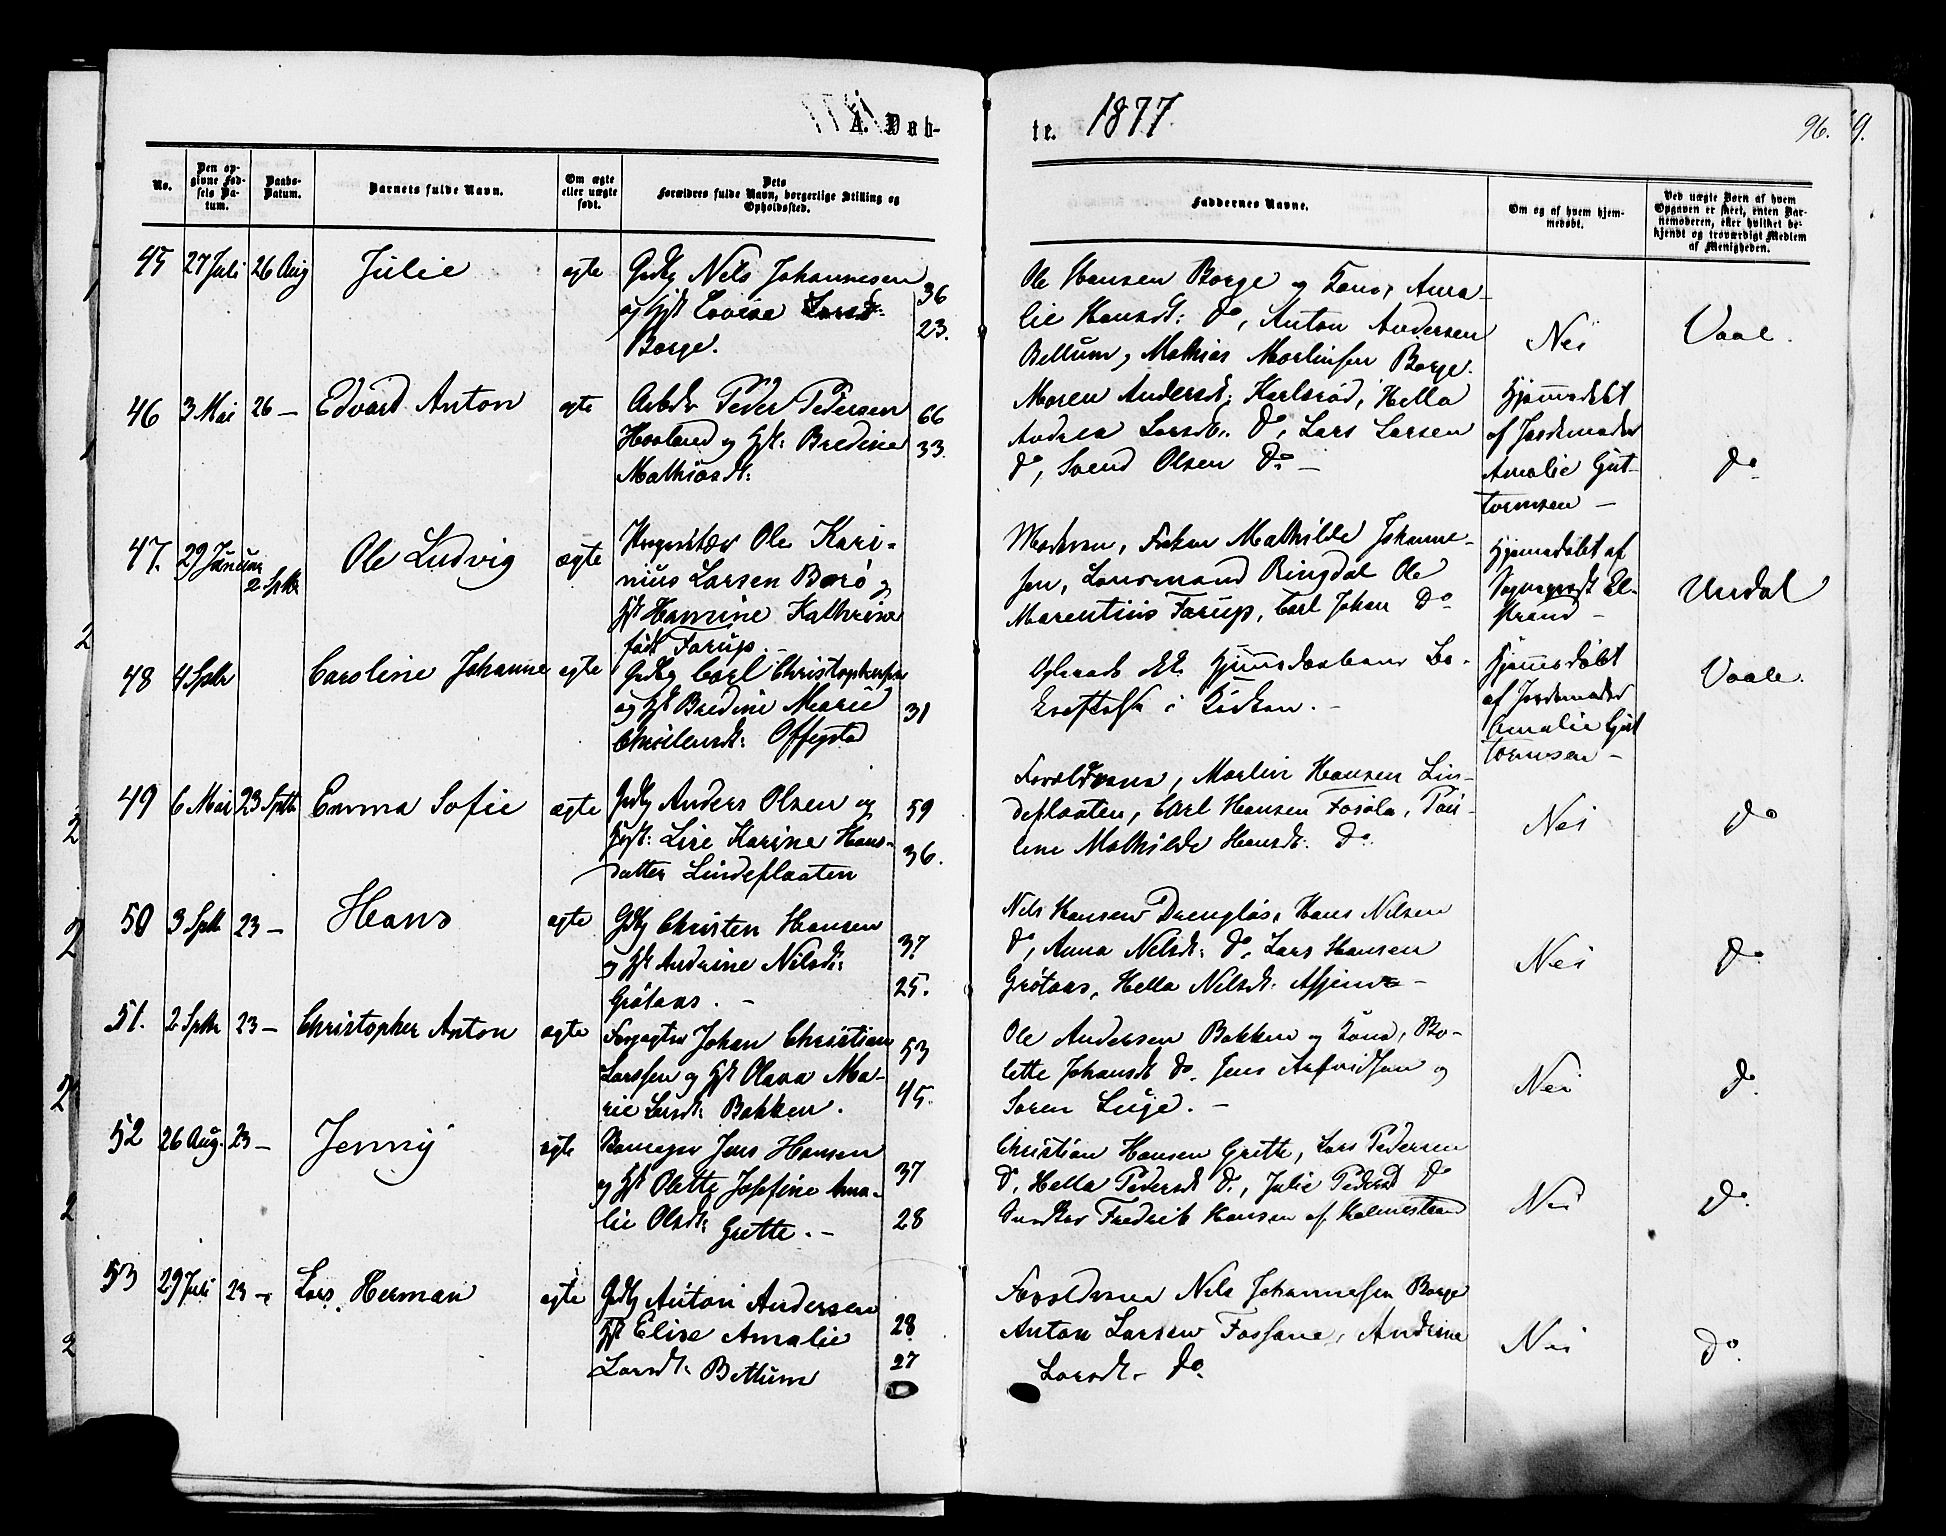 A. Døb-
te. 1877.
96.
9.
No.
Den op-
givne Fød-
sels Da-
tum.
Daabs-
Datum.
Barnets fulde Navn.
Om ægte
eller uægte
født.
Dets
Forældres fulde Navn, borgerlige Stilling og
Opholdssted.
Faddernes Navne.
Om og af hvem hjem-
medøbt.
Ved uægte Børn af hvem
Opgaven er skeet, enten Bar-
nemoderen, eller hvilket be-
kjendt og troværdigt Medlem
af Menigheden.
45 27 Juli 26 Aug Julie ægte Grdbg Nels Johannesen 36
og Hst Lovise Larsd: 23.
Borge.
Ole Hansen Borge og Kone, Ama-
lie Hansdt: Do, Anton Andersen
Bettum, Mathias Martinsen Borge.
Nei
Vaale.
46 3 Mai 26 — Edvard Anton ægte Arbdr Peder Pedersen 66
Haaland og Hst: Bredine 33.
Mathiasdt:
Maren Andersdt: Karlsrød, Hella
Andrea Larsdt: Do, Lars Larsen
Do, Svend Olsen Do —
Hjemmedøbt
af Jordemoder
Amalie Gut-
tormsen —
Do
47. 29 Januar 2 Sptbr Ole Ludvig ægte Ole Kari-
nius Larsen Barø og
Hst Hamine Kathrine
født Farup. —
Moderen, Frøken Mathilde Johanne-
sen, Lensmand Ringdal Ole
Marentius Farup, Carl Johan Do
Hjemmedøbt af
Sogneprest El-
strand —
Undal
48 4 Sptbr Caroline Johanne ægte Grdbg Carl Christophersen
og Hst Bredine Marie 31
Christensdt: Offigstad
i Kirken. —
Hjemmedøbt
af Jordemoder
Amalie Gut
tormsen —
Vaale.
49 6 Mai 23 Sptbr Emma Sofie ægte Grdbg Anders Olsen og 59
Hst: Lise Karine Hans- 36.
datter Lindeflaaten
Forældrene, Martin Hansen Lin-
deflaaten, Carl Hansen Fosøla, Pau-
line Mathilde Hansdt: Do
Nei
Do
50 3 Sptbr 23 — Hans ægte Grdbg Christen Hansen 37
og Hst Andrine Nilsdt: 25.
Grøtaas. —
Nils Hansen Drengløs, Hans Nilsen
Do, Anna Nilsdt: Do, Lars Hansen
Grøtaas, Hella Nilsdt: —
Nei
Do
51. 2 Sptbr 23 — Christopher Anton ægte Forpagter Johan Christian 53
Larssen og Hst Olava Ma- 45.
rie Larsdt: Bakken.
Ole Andersen Bakken og Kone, Bo-
lette Johansdt Do. Jens Arfvidsen og
Søren Luge. —
Nei
Do.
52 26 Aug. 23 — Jenny ægte Skomager Jens Hansen 37
og Hst Olette Josefine Ama- 28
lie Olsdt: Grette. —
Christian Hansen Grette, Lars Pedersen
Do, Hella Pedersdt Do, Julie Pedersd Do
Fredrik Hansen af Holmestrand
Nei
Do.
53 29 Juli 23 — Lars Herman ægte Grdbg Anton Andersen 28
Hst Elise Amalie 27
Larsdt: Bettum
Forældrene Nils Johannesen Borge
Anton Larsen Fossane, Andrine
Larsdt — Do.
Nei
Do.